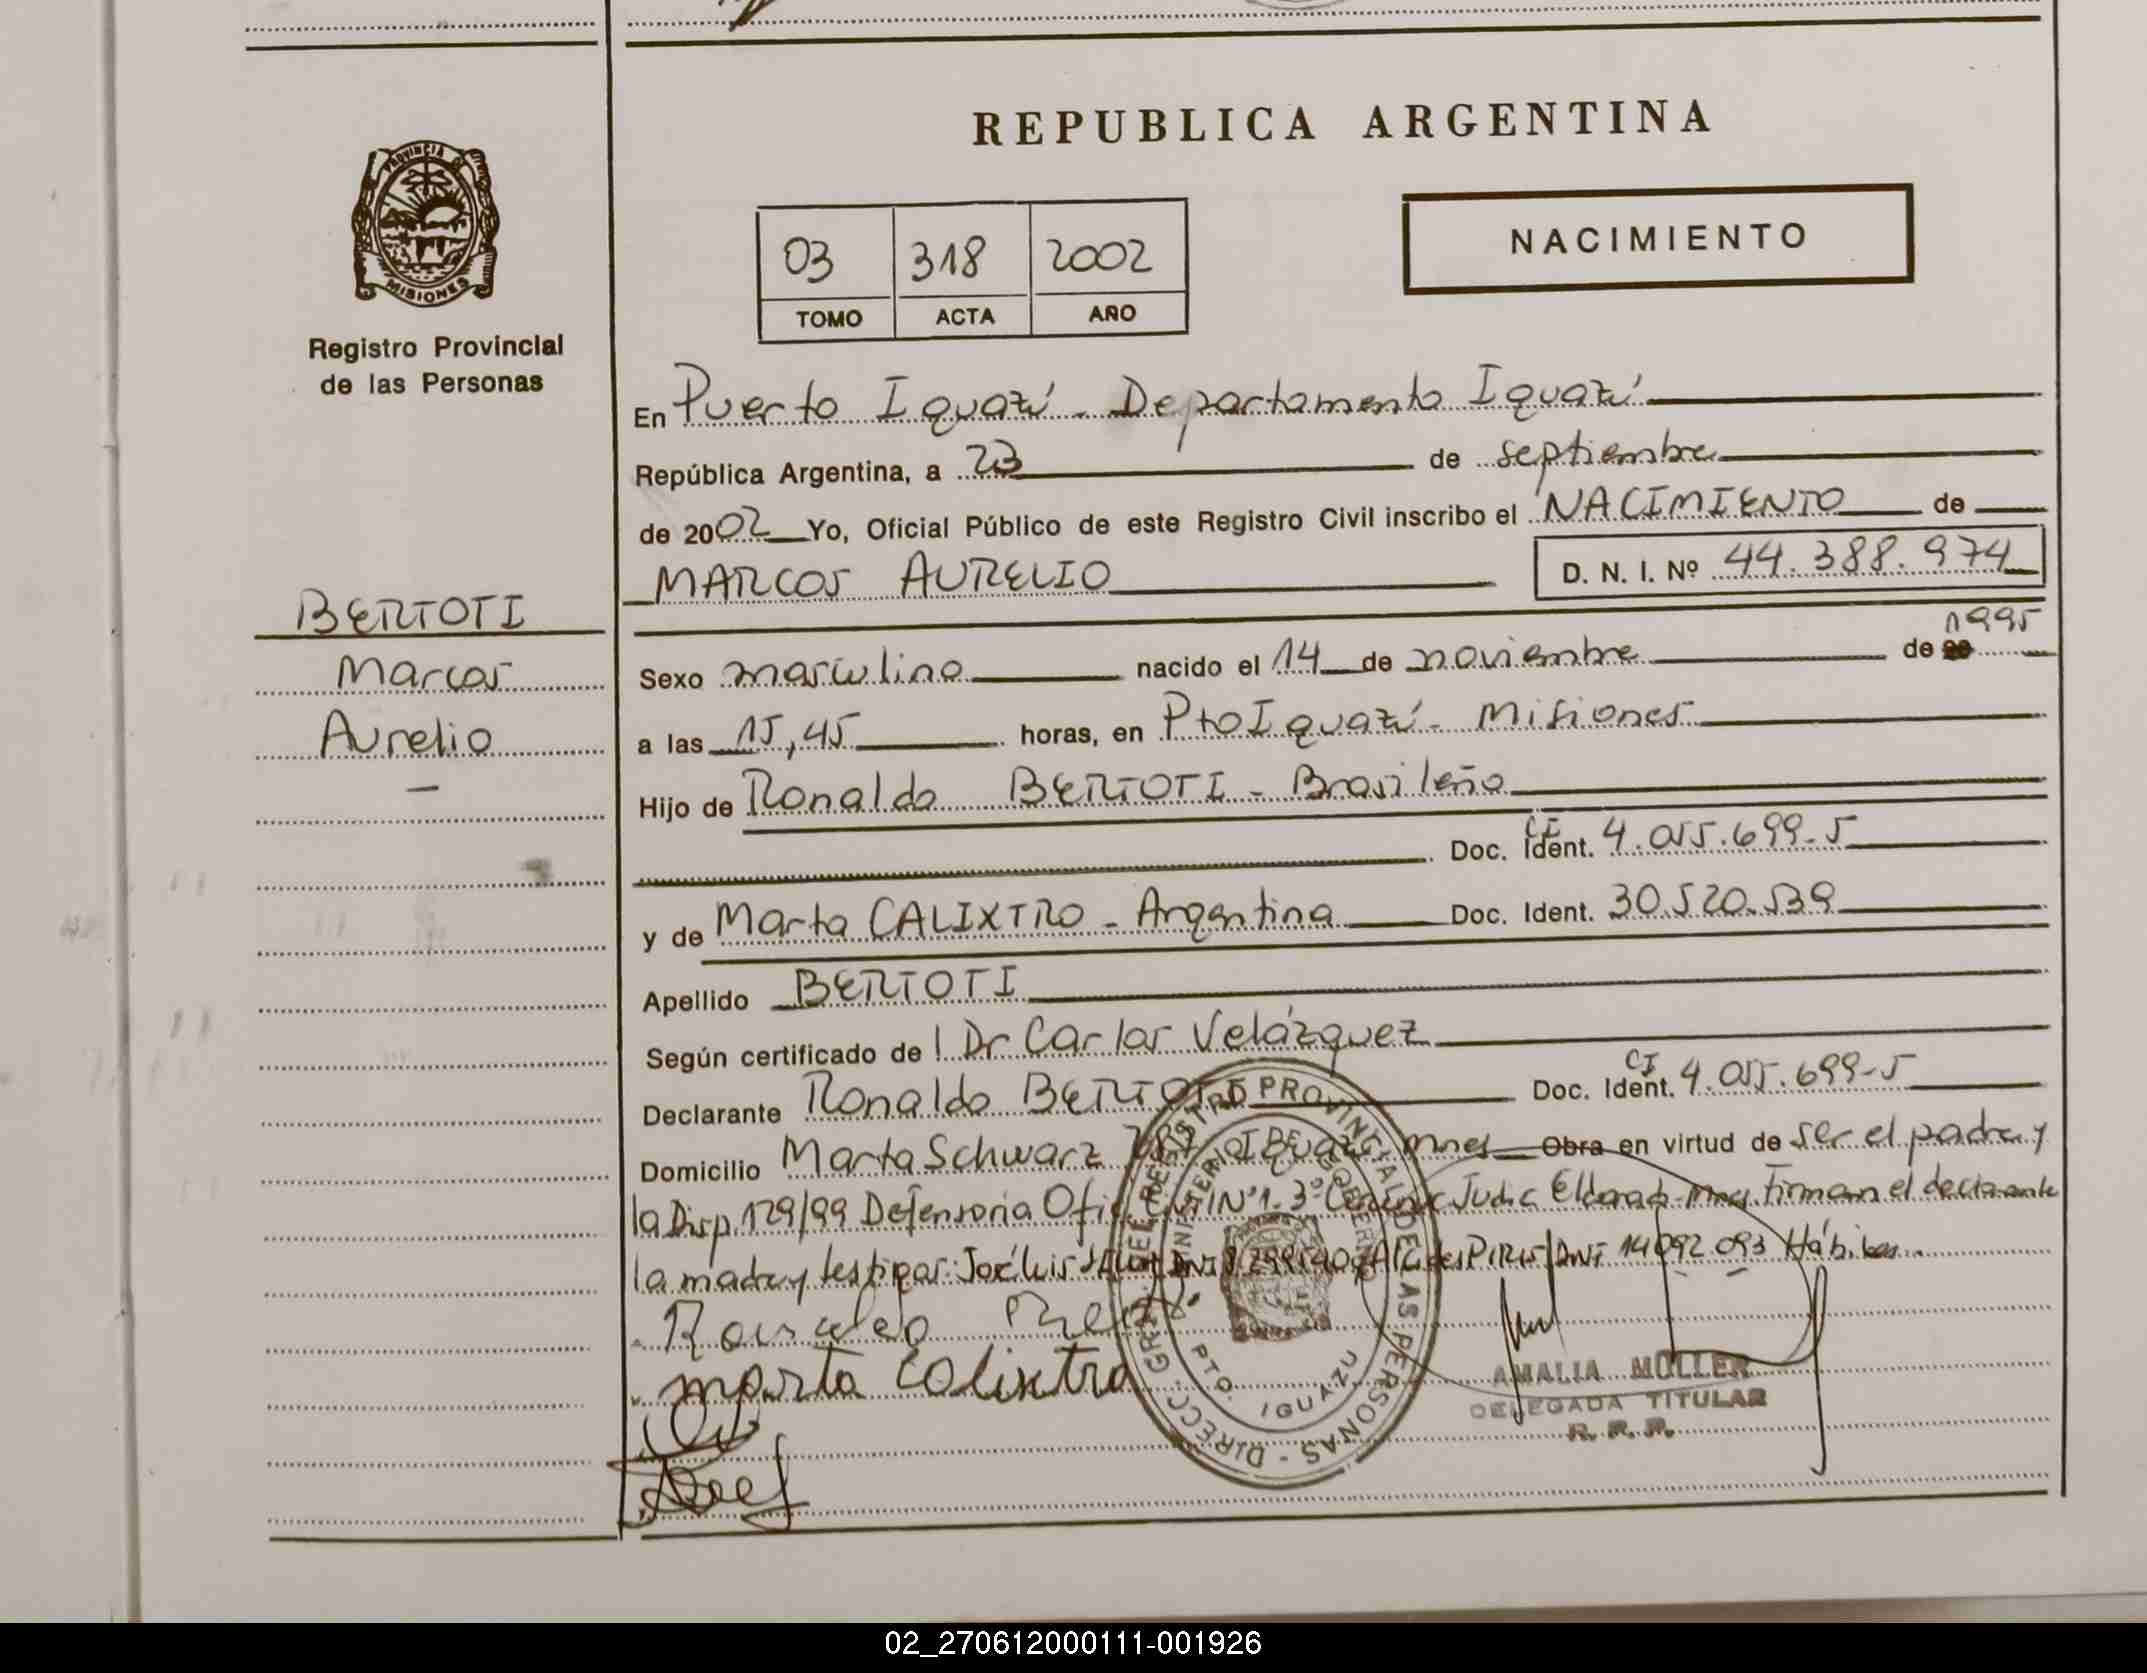 REPUBLICA ARGENTINA
PROVINCIA DE MISIONES
Registro Provincial
de las Personas
03 318 2002
TOMO ACTA AÑO
NACIMIENTO
En Puerto Iguazú - Departamento Iguazú
República Argentina, a 23 de septiembre
de 2002 Yo, Oficial Público de este Registro Civil inscribo el NACIMIENTO de
MARCOS AURELIO D. N. I. Nº 44.388.974
BERTOTI
Marcos
Aurelio
1995
Sexo masculino nacido el 14 de noviembre de 20
a las 15,45 horas, en Pto Iguazú - Misiones
Hijo de Ronaldo BERTOTI - Brasileño
Doc. Ident. CI 4.055.699-5
y de Marta CALIXTRO - Argentina Doc. Ident. 30.520.539
Apellido BERTOTI
Según certificado de l Dr Carlos Velázquez
Declarante Ronaldo BERTOTI Doc. Ident. CI 4.055.699-5
Domicilio Marta Schwarz Iguazú mnes Obra en virtud de ser el padre y
la Disp. 129/99 Defensoria Ofic. Nº 1. 3º Judic Eldorado mnes. Firman el declarante
la madre y testigos: José Luis DNI 14.092.093 Hábiles.
Ronaldo
Marta Calixtro
DIRECC. GRAL. DEL REGISTRO PROVINCIAL DE LAS PERSONAS
MINISTERIO DE GOBIERNO
PTO. IGUAZU
AMALIA MÜLLER
DELEGADA TITULAR
R. P. P.
02_270612000111-001926